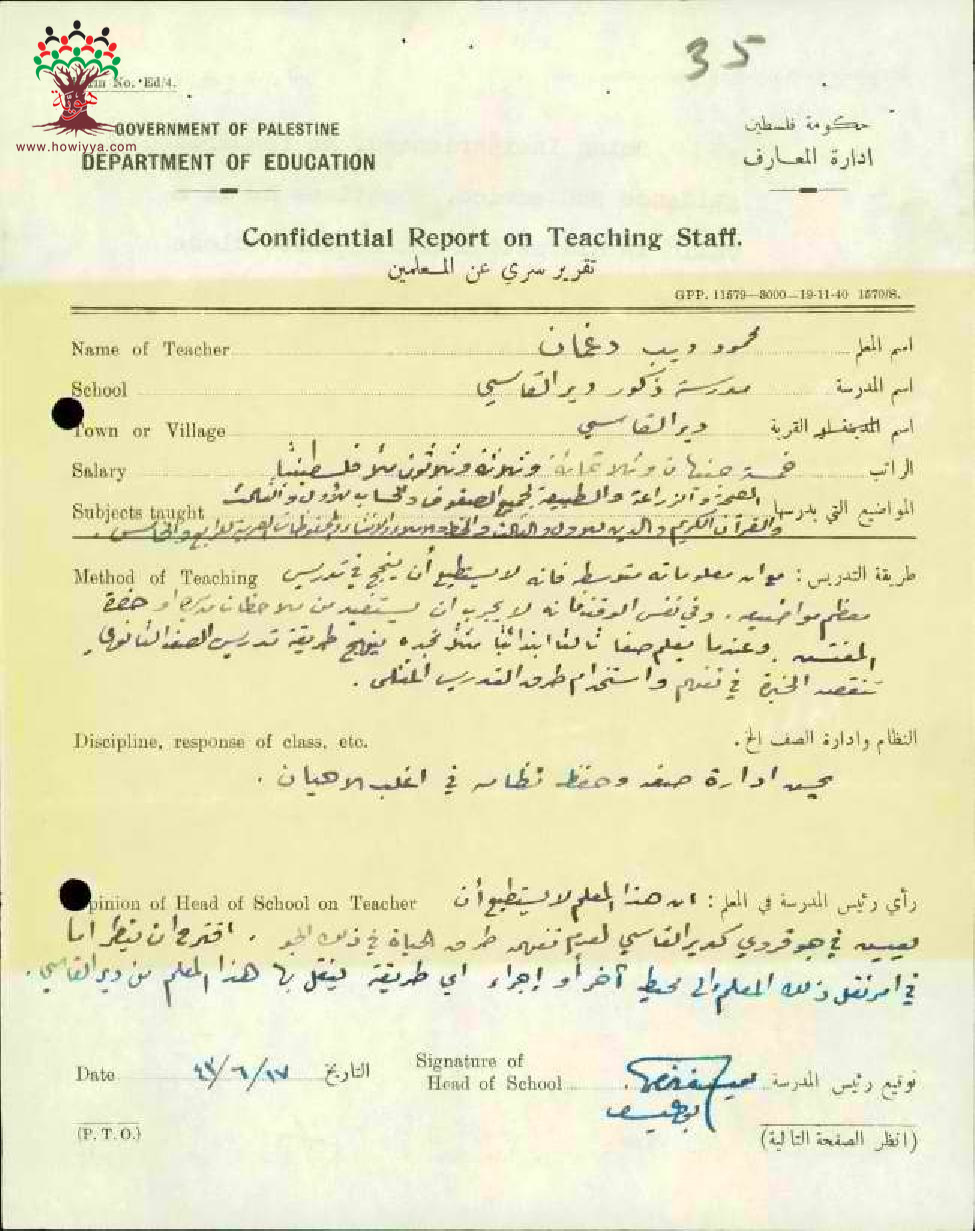 35
Form No. Ed/4.
www.howiyya.com
هوية
GOVERNMENT OF PALESTINE
DEPARTMENT OF EDUCATION
حكومة فلسطين
ادارة المعارف
Confidential Report on Teaching Staff.
تقرير سري عن المعلمين
GPP. 11579—3000—19-11-40 1570/S.
Name of Teacher محمود ديب دغمان اسم المعلم
School مدرسة ذكور دير القاسي اسم المدرسة
Town or Village دير القاسي اسم القرية
Salary خمسة جنيهات وثلاثمائة وثلاثة وثلاثون ملا فلسطينيا الراتب
Subjects taught الصحة والزراعة والطبيعة لجميع الصفوف والحساب للأول والثالث المواضيع التي يدرسها
والقرآن الكريم والدين للأول والثالث والخط العربية للرابع والخامس.
Method of Teaching طريقة التدريس : معلوماته متوسطة فانه لا يستطيع أن ينجح في تدريس
معظم مواضيعه. وفي نفس الوقت فانه لا يجرب ان يستفيد من ملاحظات مديره او حضرة
المفتش. وعندما يعلم صفا ثالثا ابتدائيا مثلا تجده ينهج طريقة تدريس الصف الثانوي.
تنقصه الخبرة في واستخدام طرق التدريس المثلى.
Discipline, response of class, etc. النظام وادارة الصف الخ.
يحسن ادارة صفه وحفظ نظامه في اغلب الاحيان.
Opinion of Head of School on Teacher رأي رئيس المدرسة في المعلم : ان هذا المعلم لا يستطيع أن
يعيش في جو قروي كدير القاسي لعدم تفهمه طرق الحياة في ذلك الجو. اقترح ان ينظر اما
في امر نقل ذلك المعلم الى محيط آخر أو إجراء اي طريقة ينقل بها هذا المعلم من دير القاسي.
Date ١٧/٦/٤٣ التاريخ
Signature of
Head of School توقيع رئيس المدرسة
(P. T. O.)
(انظر الصفحة التالية)